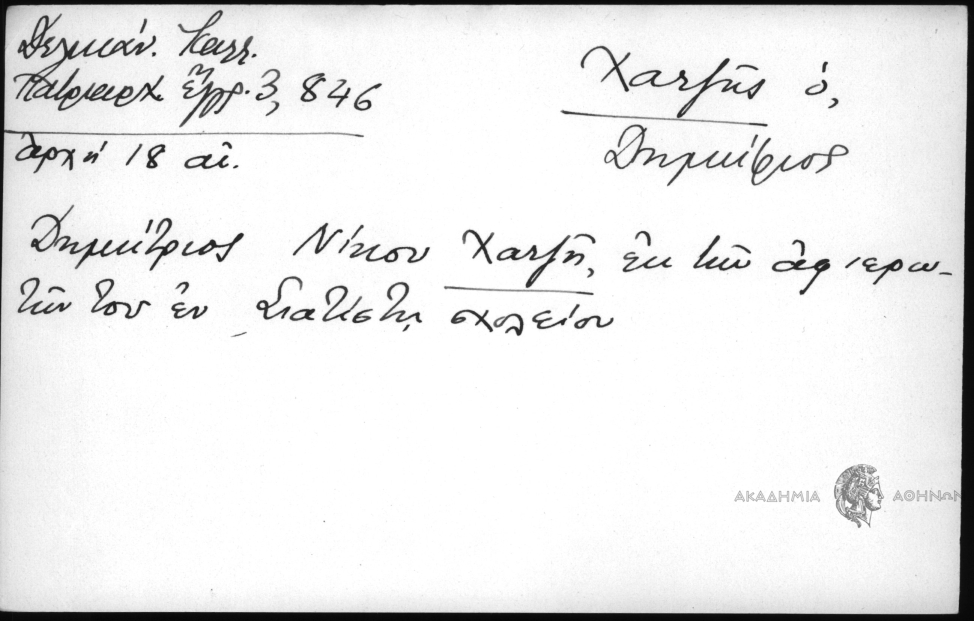 Δελικάν. Καλλ.
Πατριαρχ. ἔγγρ. 3, 846
ἀρχή 18 αἰ.
Χατζῆς ὁ,
Δημήτριος
Δημήτριος Νίκου Χατζῆ, ἐκ τῶν ἀφιερω-
τῶν του ἐν Σιατίστῃ σχολείου
ΑΚΑΔΗΜΙΑ ΑΘΗΝΩΝ